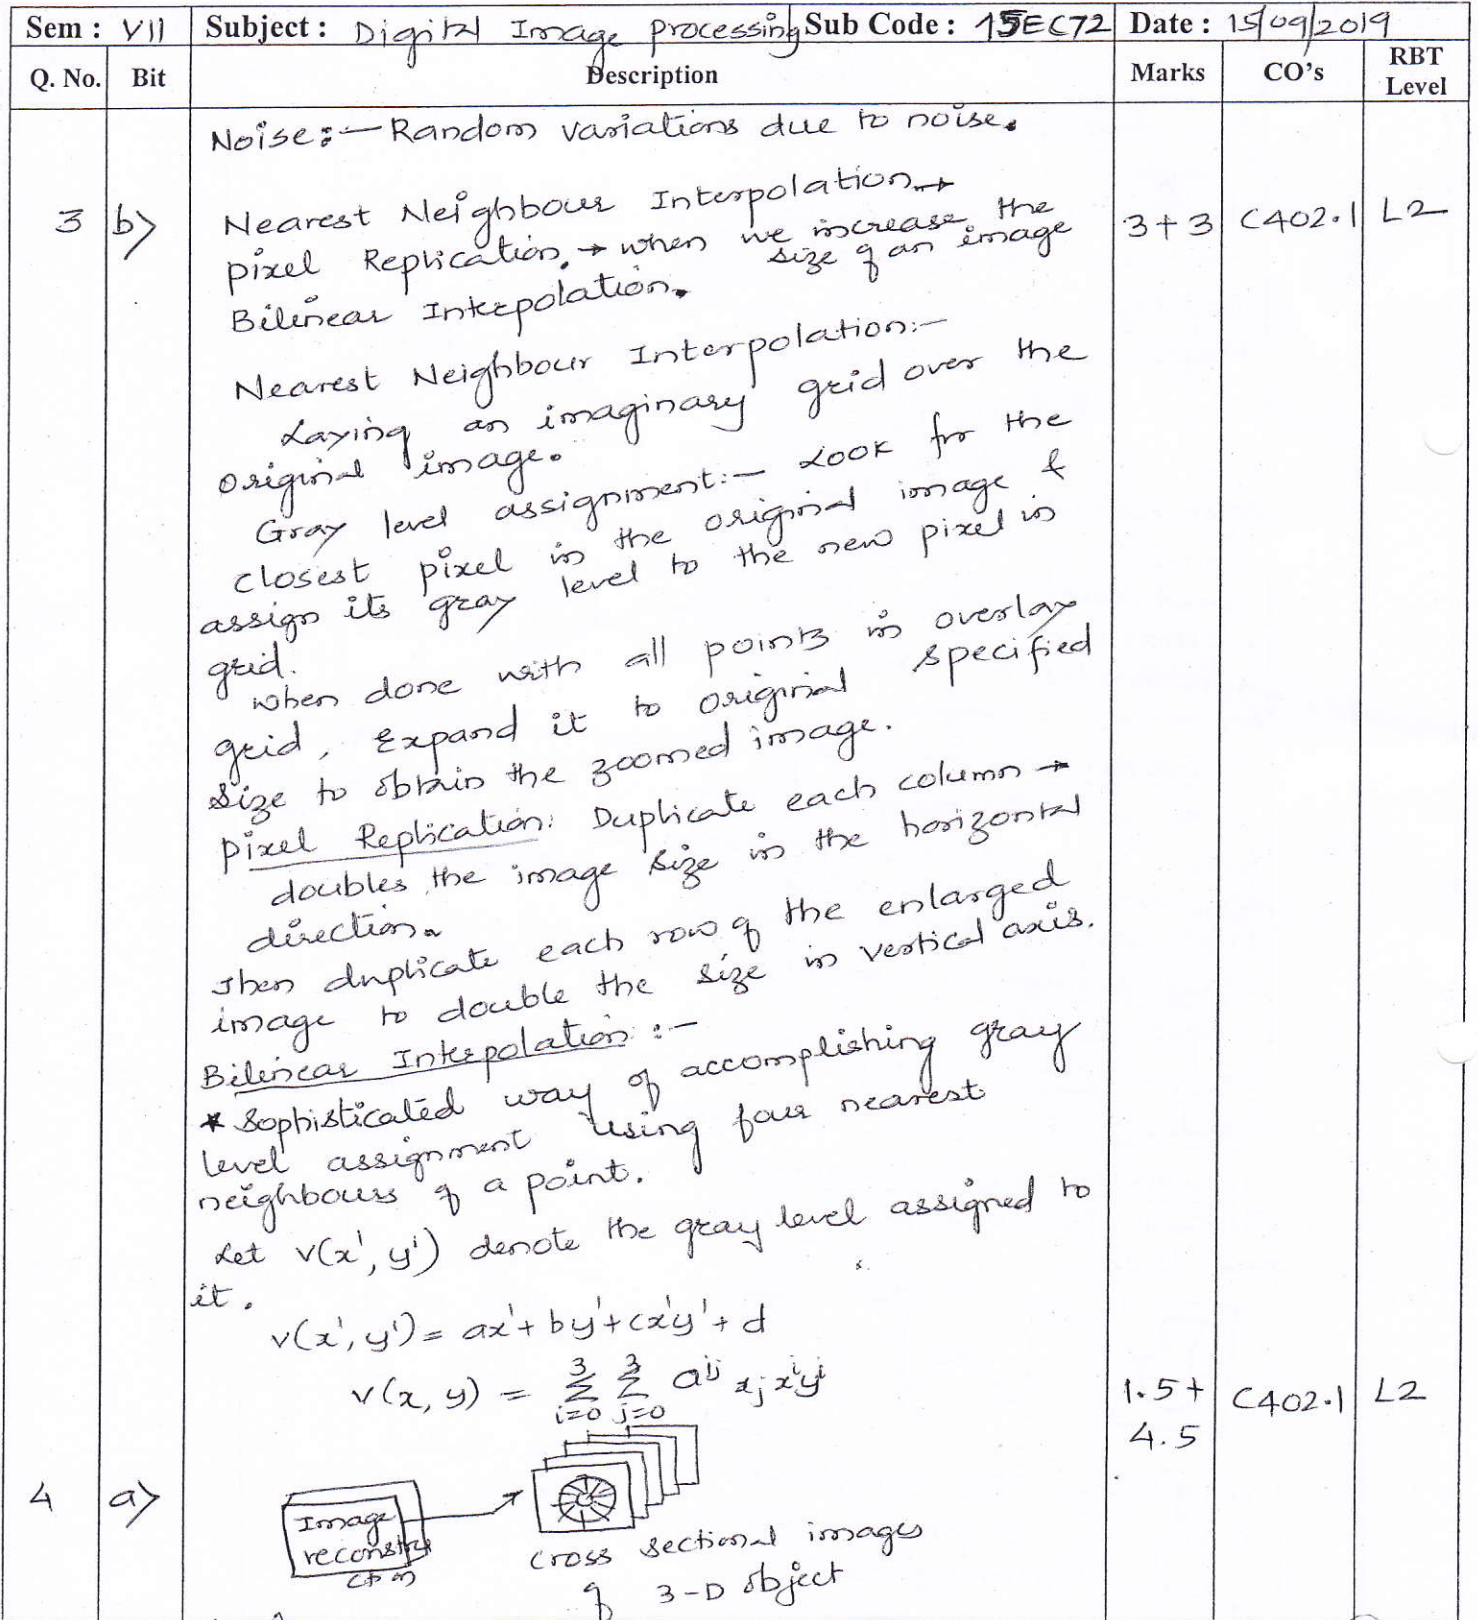 Sem : VII Subject : Digital Image processing Sub Code : 15EC72 Date : 15/09/2019
Q. No. Bit Description Marks CO's RBT Level
Noise:- Random variations due to noise.
3 b) Nearest Neighbour Interpolation → 3+3 C402.1 L2
pixel Replication. → when we increase the size of an image
Bilinear Interpolation.
Nearest Neighbour Interpolation:-
Laying an imaginary grid over the
original image.
Gray level assignment:- Look for the
closest pixel in the original image &
assign its gray level to the new pixel in
grid.
when done with all points in overlay
grid, Expand it to original specified
size to obtain the zoomed image.
Pixel Replication: Duplicate each column →
doubles the image size in the horizontal
direction.
Then duplicate each row of the enlarged
image to double the size in vertical axis.
Bilinear Interpolation :-
* Sophisticated way of accomplishing gray
level assignment using four nearest
neighbours of a point.
Let v(x', y') denote the gray level assigned to
it.
v(x', y') = ax' + by' + cx'y' + d
v(x, y) = 3Σi=0 3Σj=0 a^ij x_j x^i y^j 1.5+ C402.1 L2
4.5
4 a) Image
reconstru
ction
cross sectional images
of 3-D object